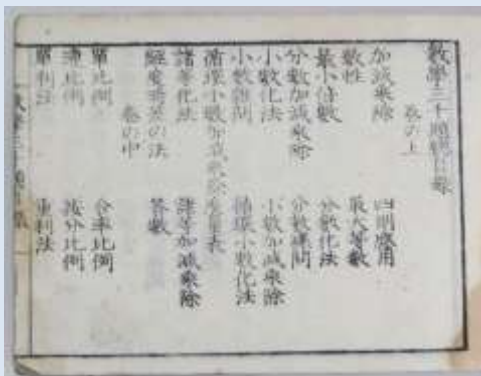 數學三千題解目錄
巻の上
加減乘除 四則應用
數性 最大等數
最小倍數 分數化法
分數加減乘除 分數雜問
小數化法 小數加減乘除
小數雜問 循環小數化法
循環小數加減乘除
諸等化法 諸等加減乘除
經度時差の法 答數
巻の中
單比例 合率比例
比例 按分比例
單利法 重利法